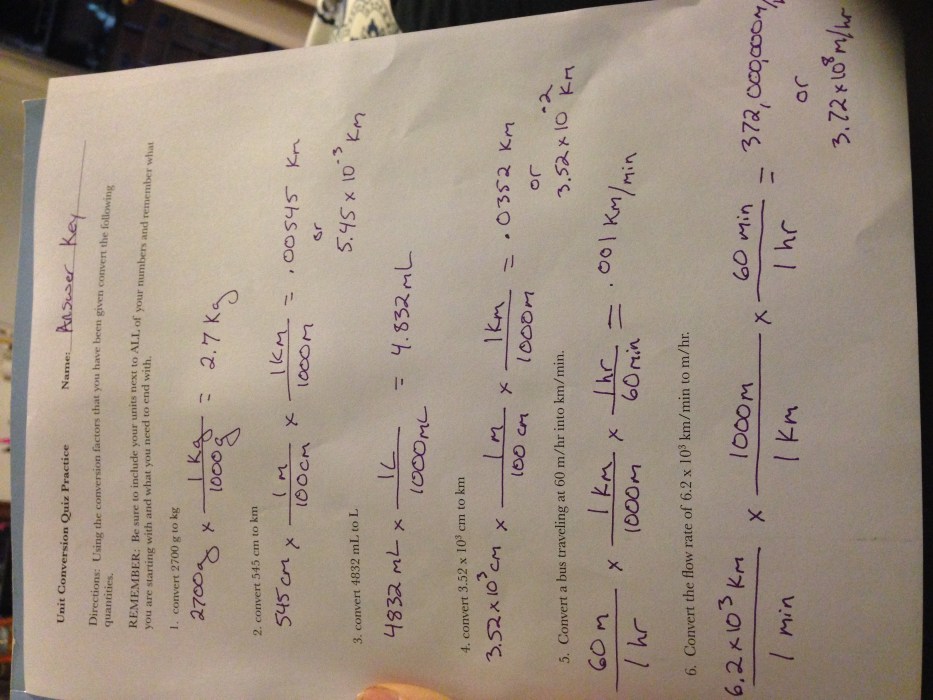 Unit Conversion Quiz Practice Name: Answer Key
Directions: Using the conversion factors that you have been given convert the following
quantities.
REMEMBER: Be sure to include your units next to ALL of your numbers and remember what
you are starting with and what you need to end with.
1. convert 2700 g to kg
2700g x 1 Kg / 1000g = 2.7 Kg
2. convert 545 cm to km
545 cm x 1 m / 100cm x 1Km / 1000m = .00545 Km
or
5.45 x 10⁻³ Km
3. convert 4832 mL to L
4832 mL x 1L / 1000mL = 4.832mL
4. convert 3.52 x 10³ cm to km
3.52 x 10³ cm x 1m / 100 cm x 1Km / 1000m = .0352 Km
or
3.52 x 10⁻² Km
5. Convert a bus traveling at 60 m/hr into km/min.
60 m / 1 hr x 1 Km / 1000m x 1hr / 60min = .001 Km/min
6. Convert the flow rate of 6.2 x 10³ km/min to m/hr.
6.2 x 10³ Km / 1 min x 1000m / 1 Km x 60 min / 1 hr = 372,000,000m/
or
3.72 x 10⁸ m/hr